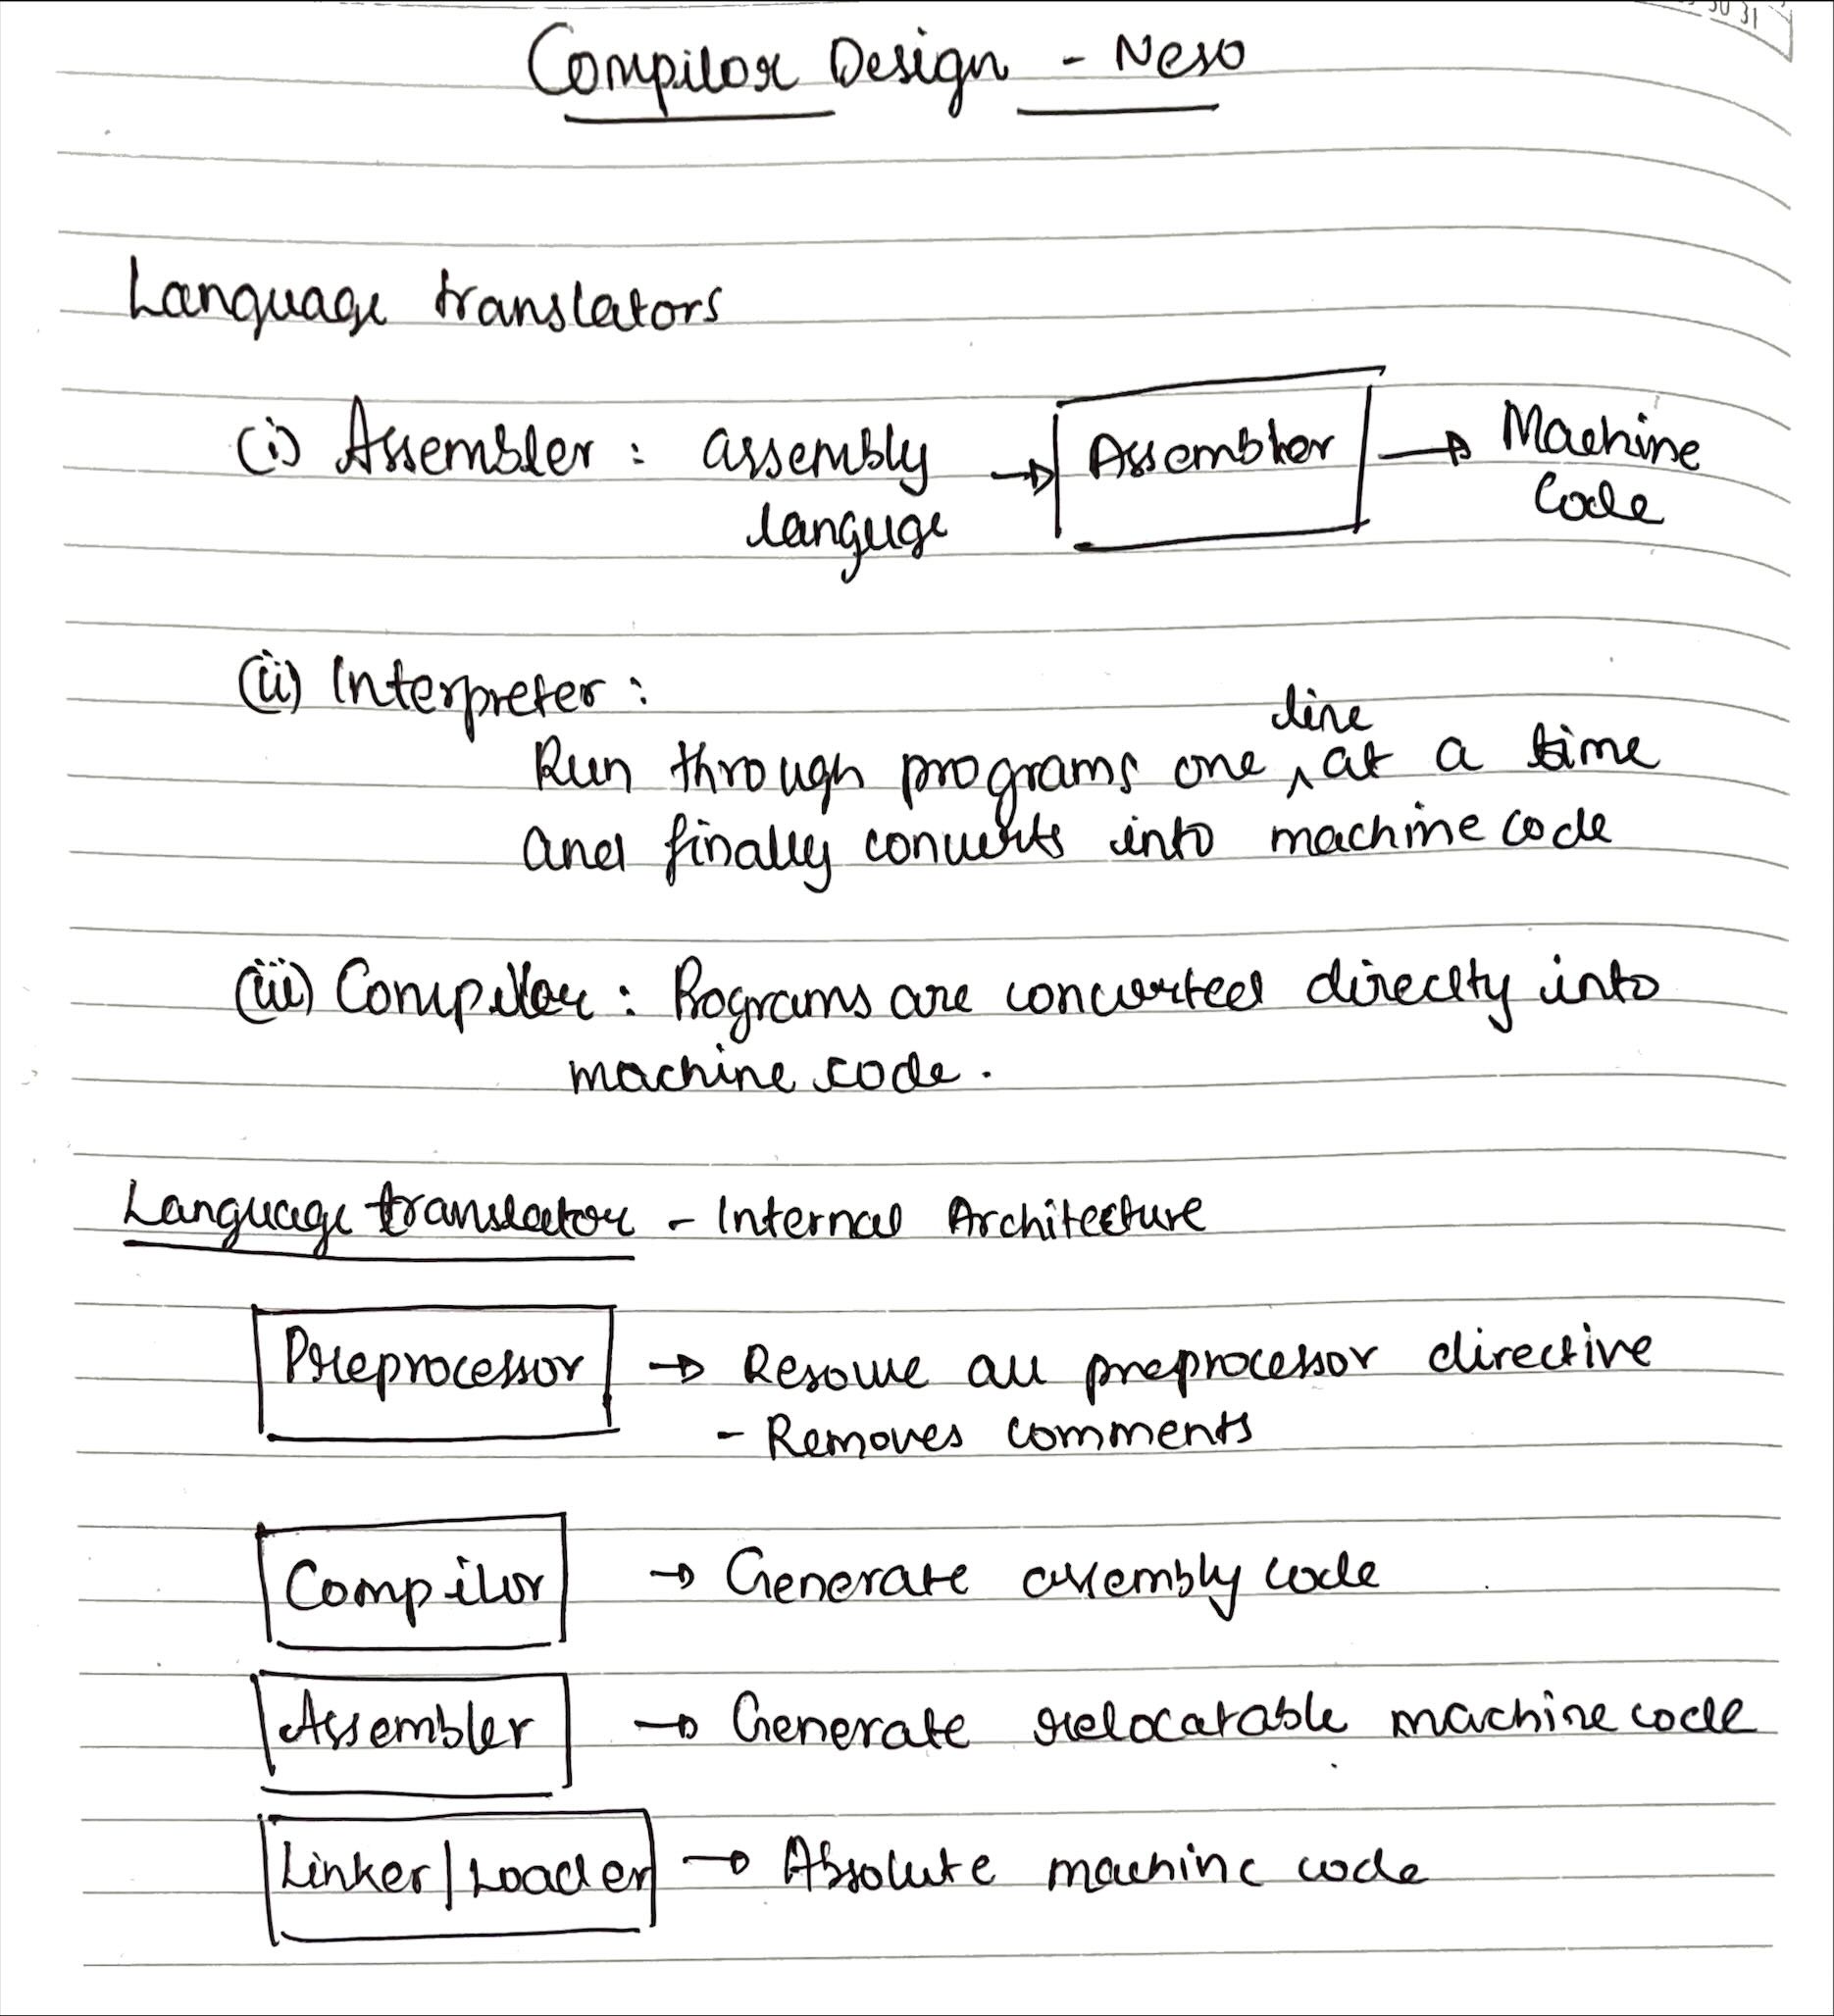 Compilor Design - Neso
Language translators
(i) Assembler : assembly → Assembler → Machine
languge Code
(ii) Interpreter :
line
Run through programs one ^ at a time
and finally converts into machine code
(iii) Compiler : Programs are converted direclty into
machine code.
Language translator - Internal Architecture
Preprocessor → Resolve all preprocessor directive
- Removes comments
Compilor → Generate assembly code
Assembler → Generate relocatable machine code
Linker/Loader → Absolute machine code